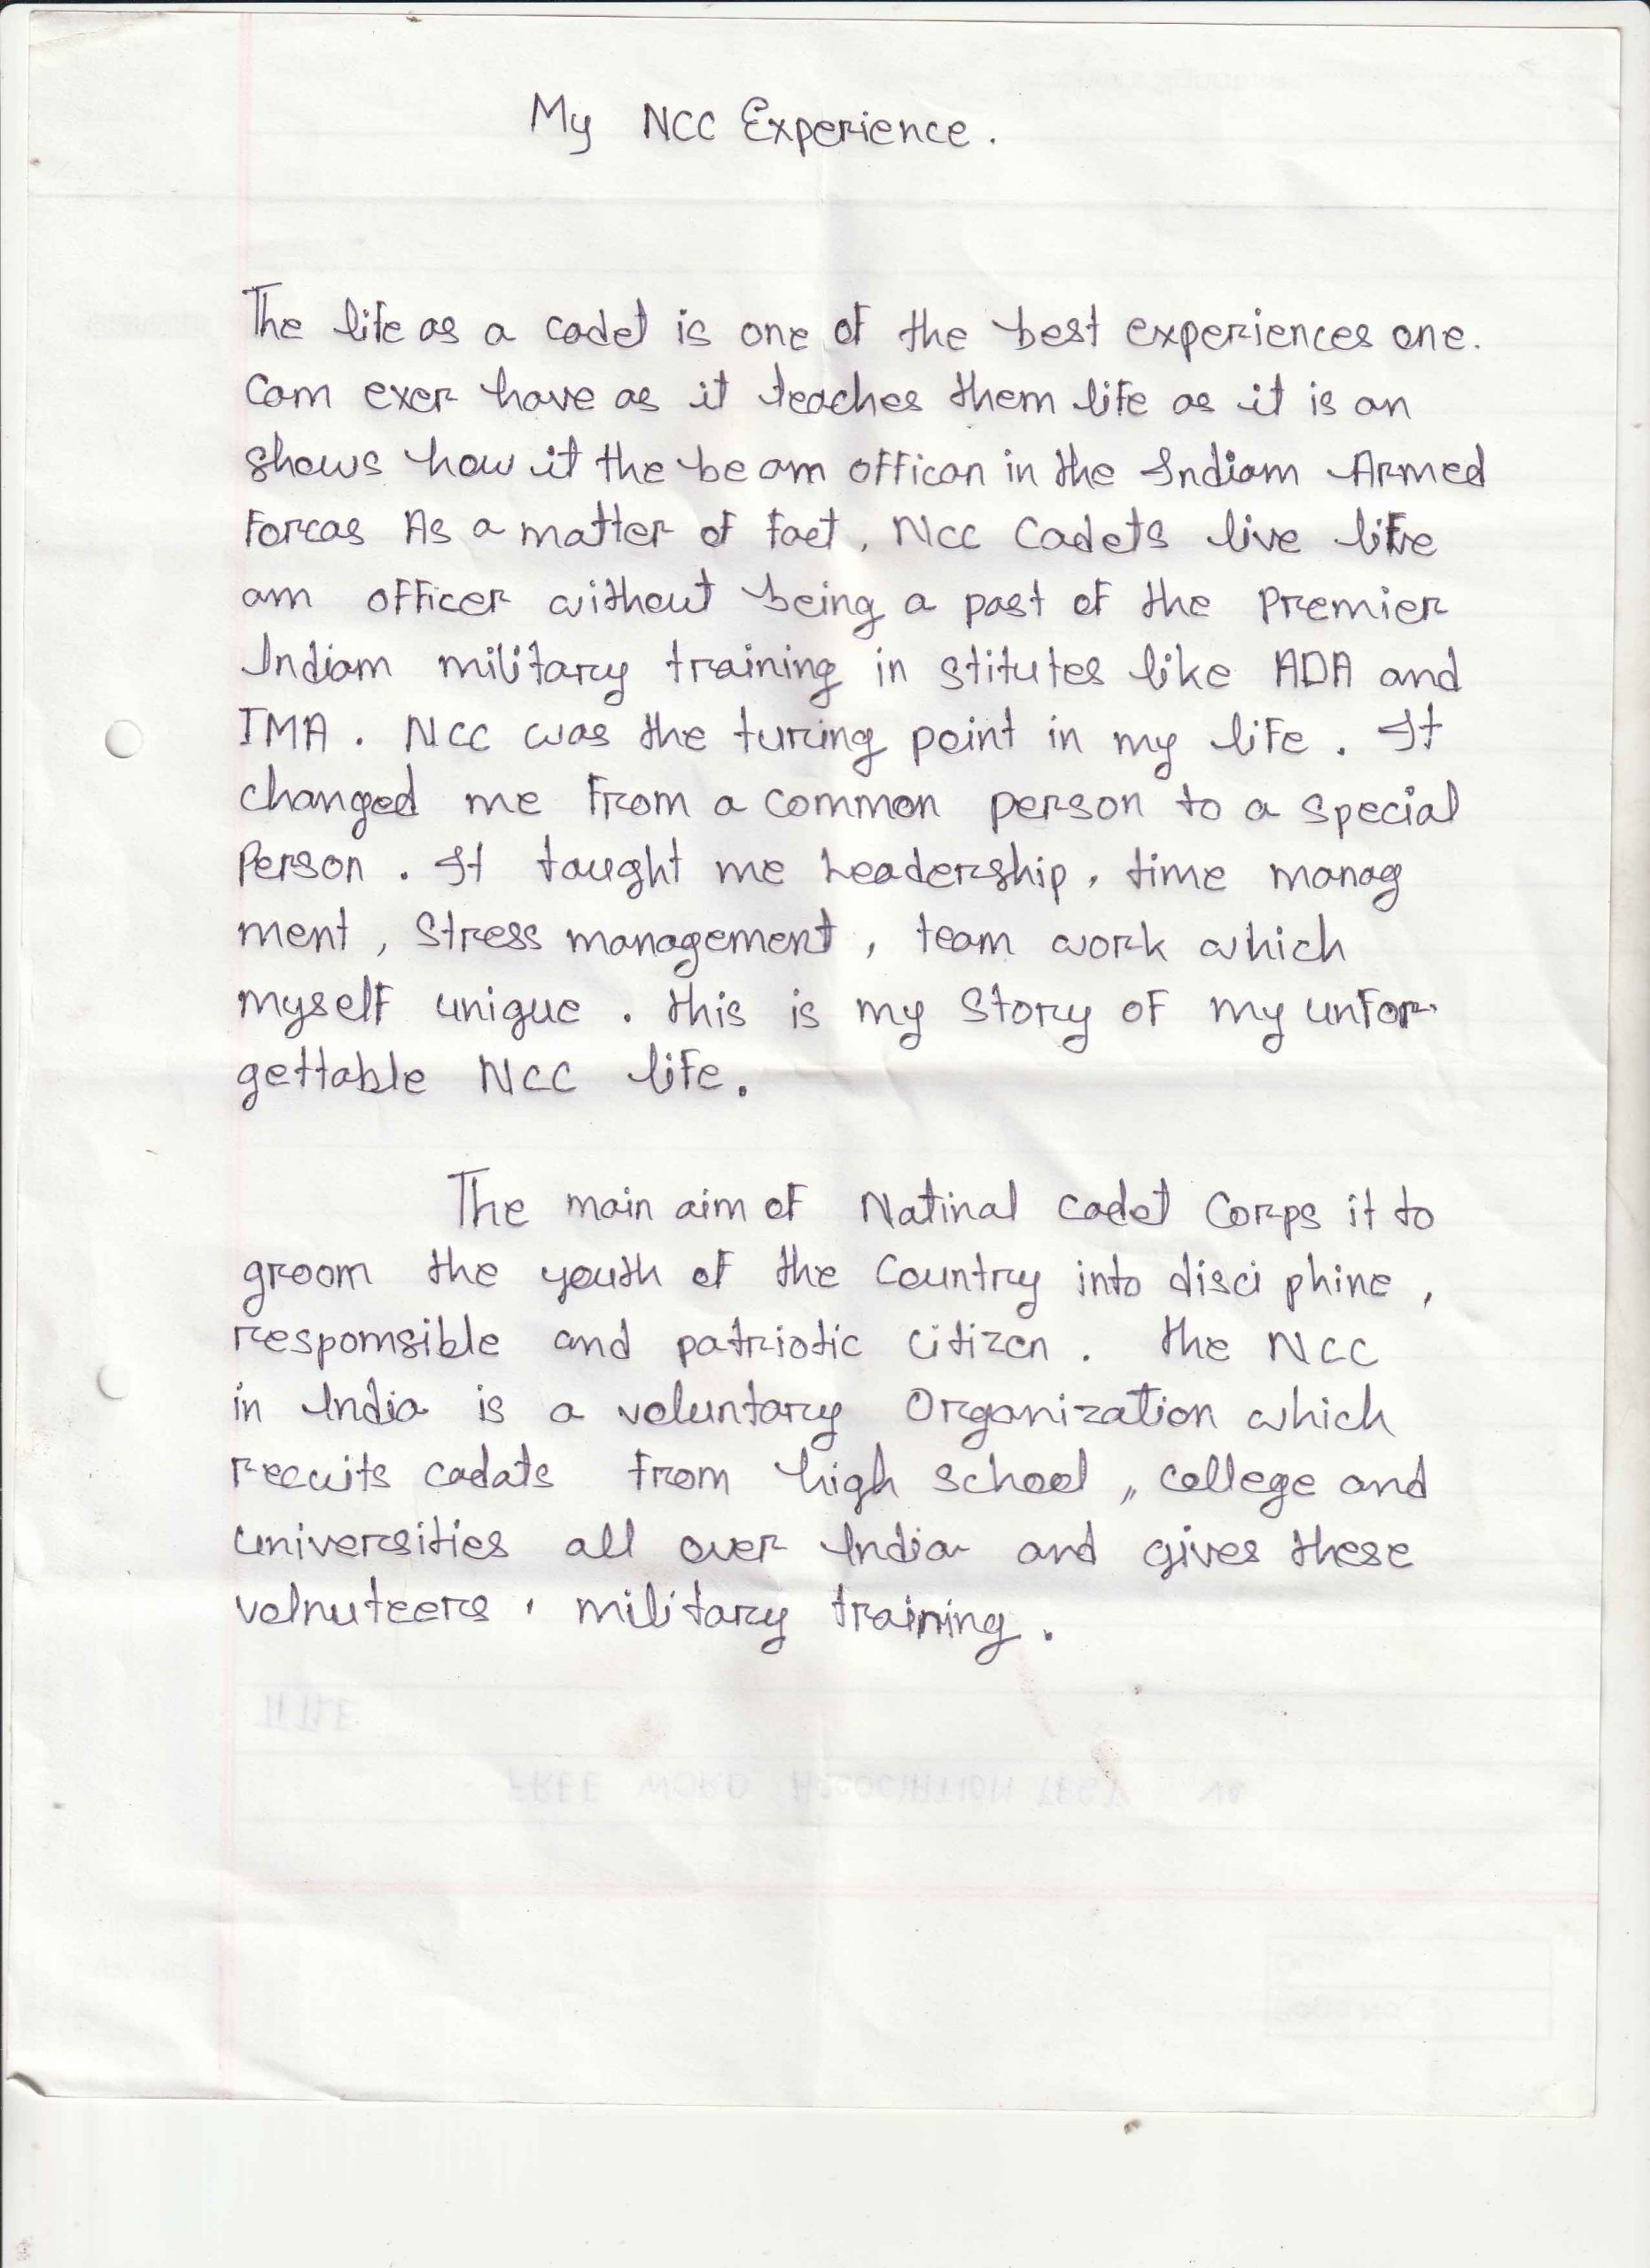 My NCC Experience.
The life as a cadet is one of the best experiences one.
Can exer have as it teaches them life as it is an
shows how it the be am offican in the Indian Armed
Forcas As a matter of fact, NCC Cadets live life
am officer without being a past of the Premier
Indian military training in stitutes like ADA and
IMA. NCC was the turing point in my life. It
changed me from a common person to a special
Person. It taught me Leadership, time manag
ment, Stress management, team work which
myself unique. this is my Story of my unfor-
gettable NCC life.
The main aim of Natinal cadet Corps it to
groom the youth of the Country into disci phine,
responsible and patriotic citizen. the NCC
in India is a voluntary Organization which
recuits cadats from high school ,, college and
universities all over India and gives these
volnuteers, military training.
TITLE
FREE WORD ASSOCIATION TEST